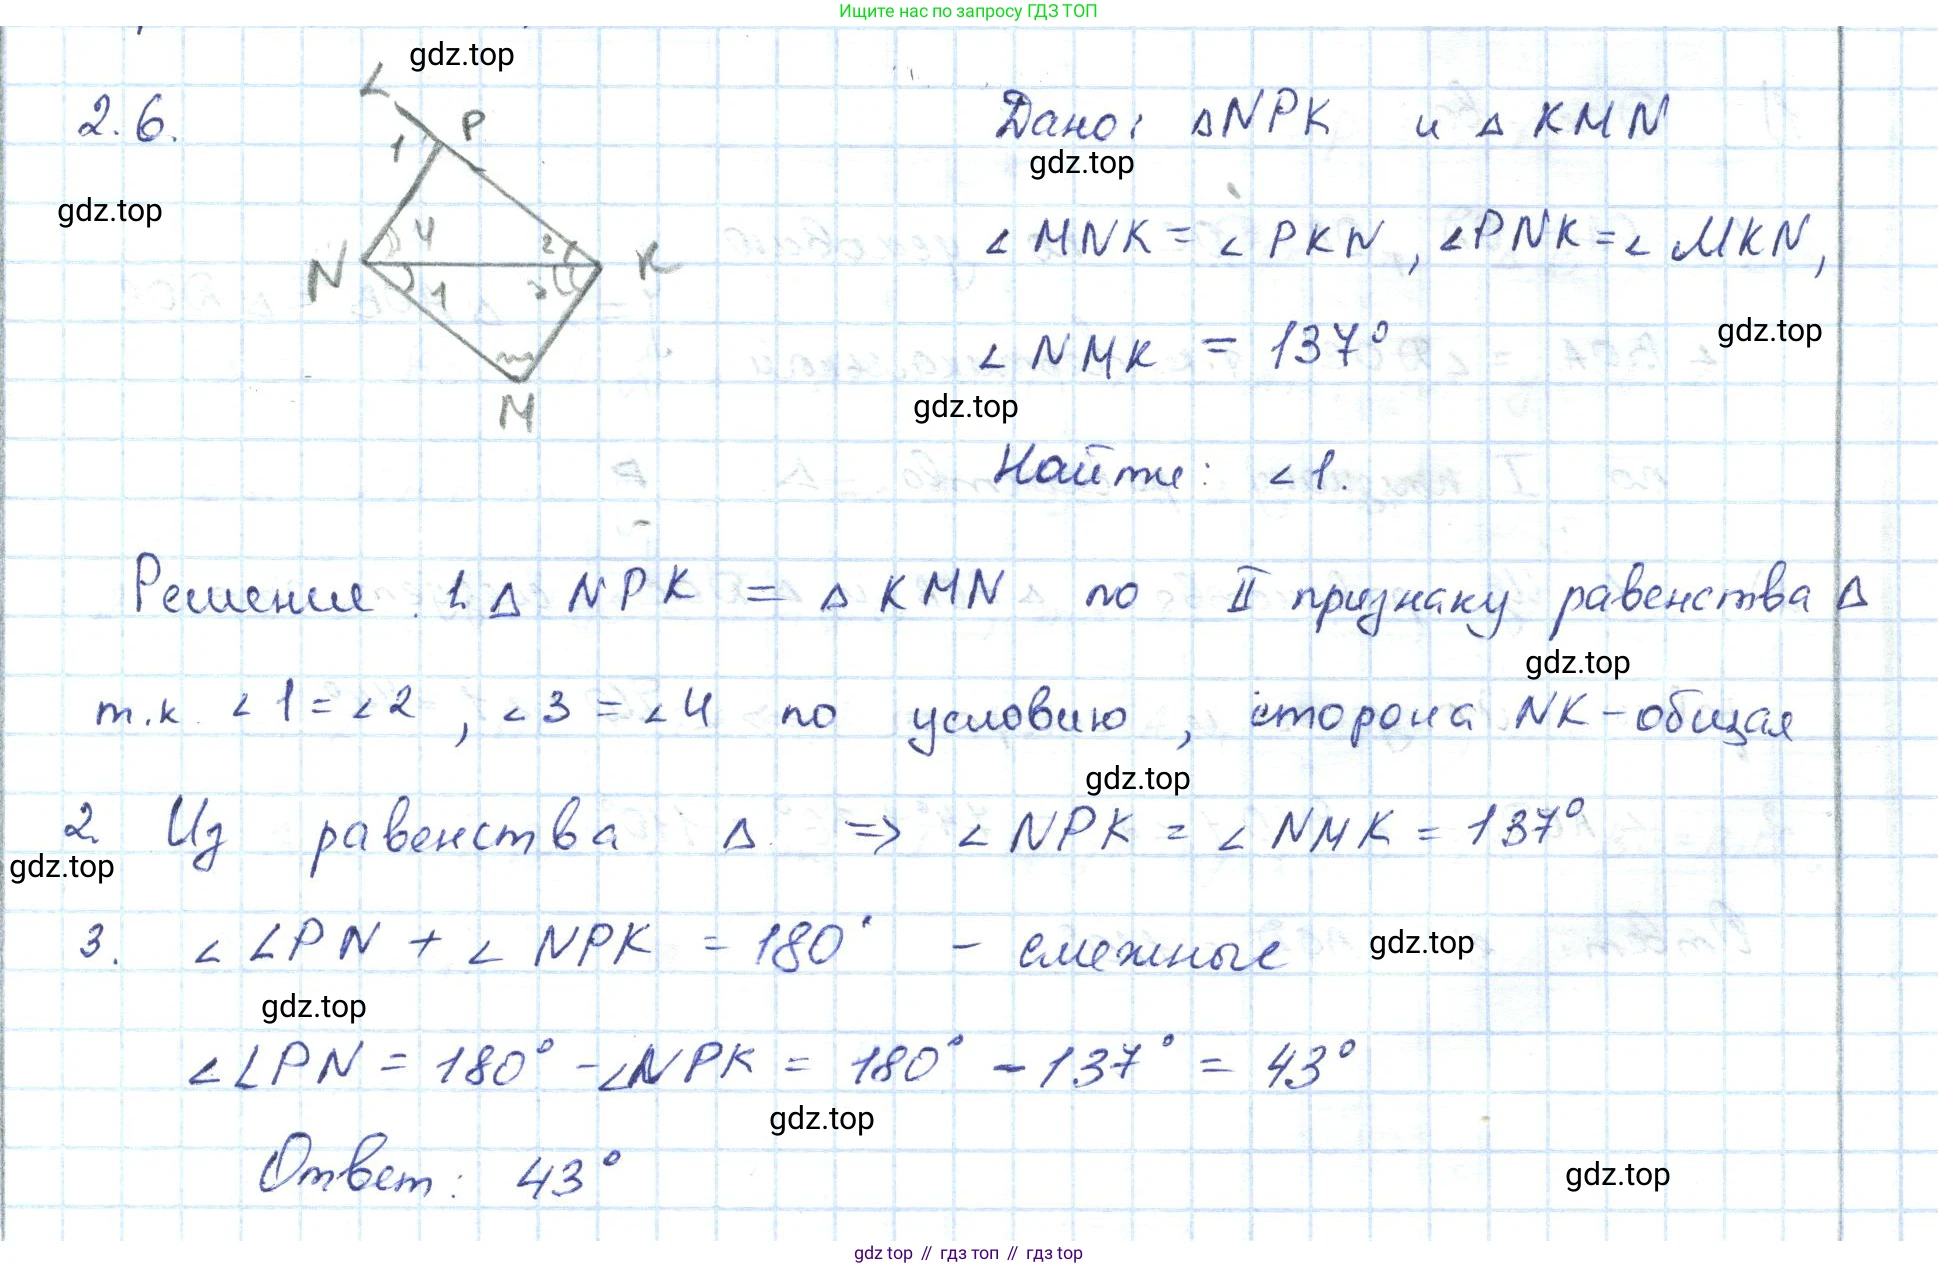 Ищите нас по запросу ГДЗ ТОП
gdz.top
2.6.
L
P
1
N
4
2
K
1
3
M
Дано: ΔNPK и ΔKMN
gdz.top
gdz.top
∠MNK = ∠PKN, ∠PNK = ∠MKN,
gdz.top
∠NMK = 137°
gdz.top
Найти: ∠1.
Решение. 1. Δ NPK = Δ KMN по II признаку равенства Δ
gdz.top
т.к. ∠1 = ∠2, ∠3 = ∠4 по условию, сторона NK - общая
gdz.top
2. Из равенства Δ. => ∠NPK = ∠NMK = 137°
gdz.top
3. ∠LPN + ∠NPK = 180° - смежные
gdz.top
gdz.top
∠LPN = 180° - ∠NPK = 180° - 137° = 43°
gdz.top
Ответ: 43°
gdz.top
gdz top // гдз топ // гдз top